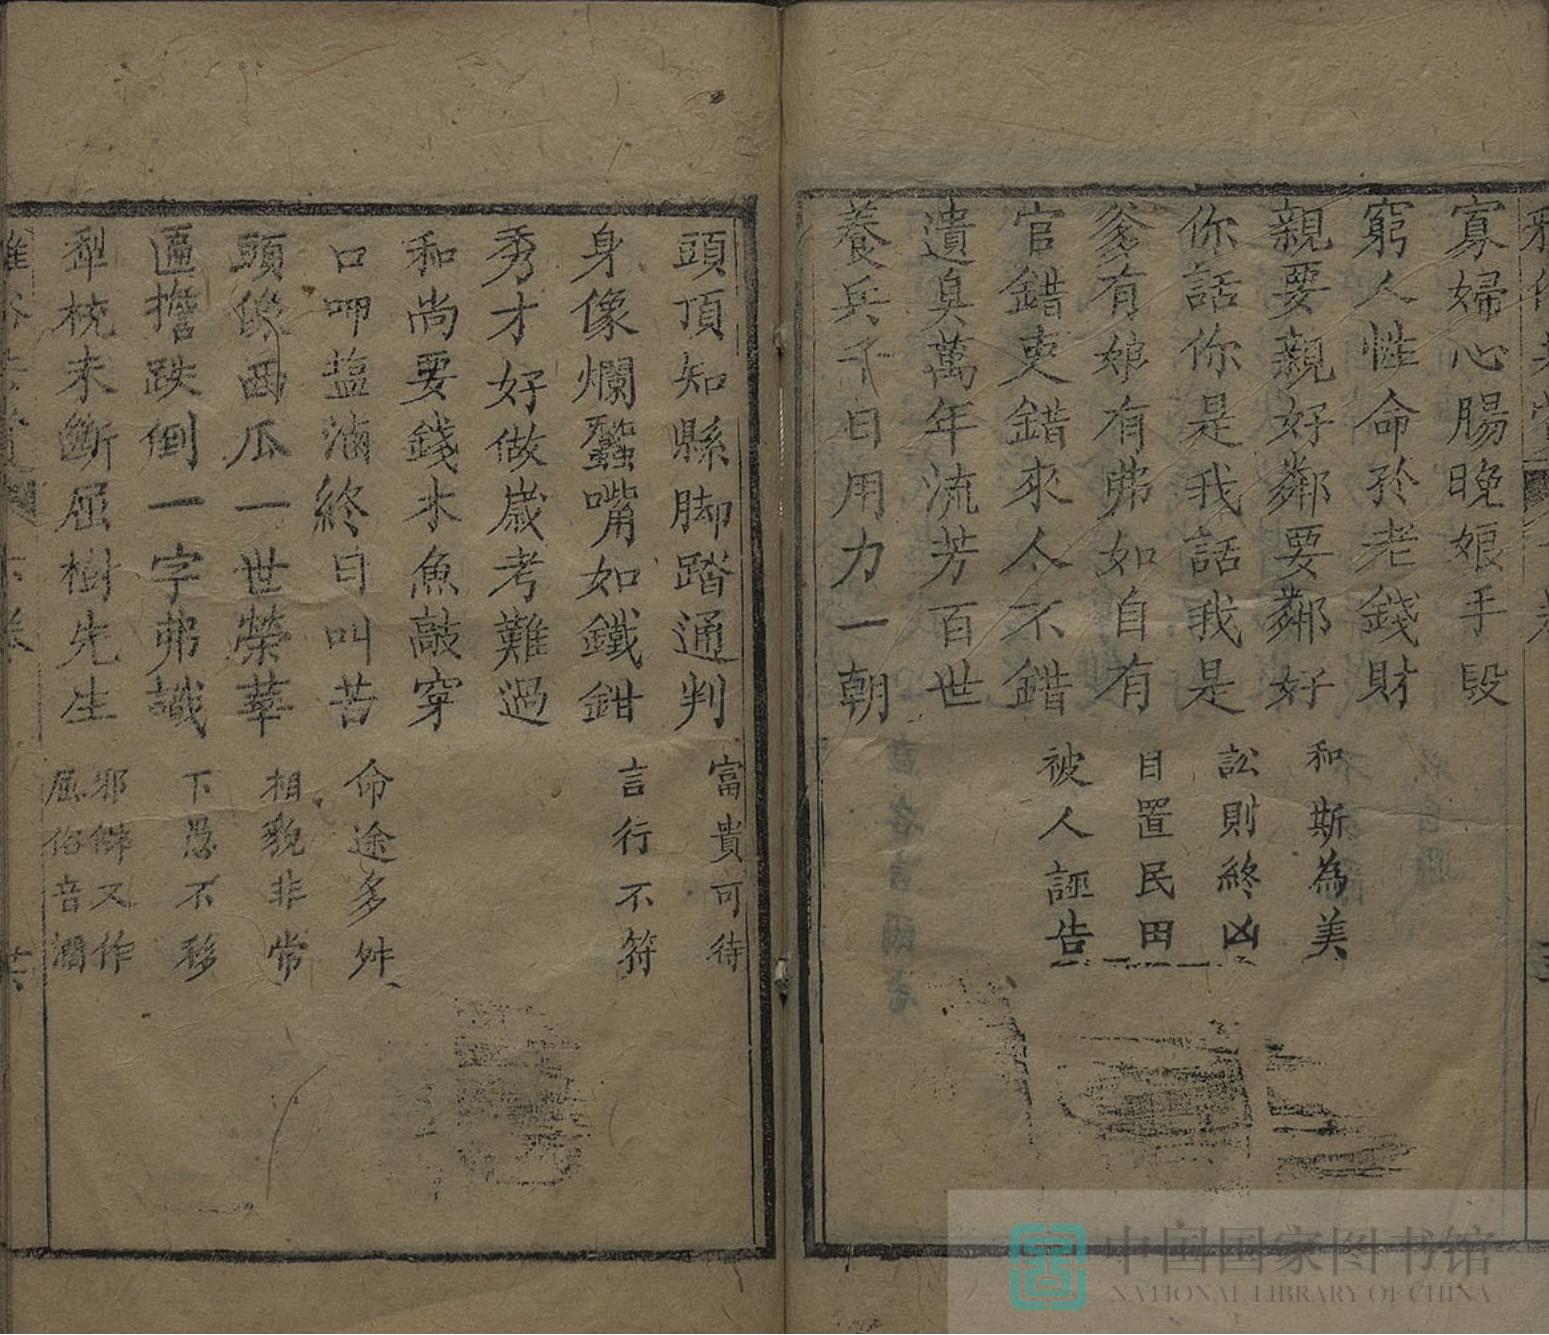 寡婦心腸晚娘手段
窮人性命於老錢財
親要親好鄰要鄰好 和斯為美
你話你是我話我是 訟則終凶
爹有娘有弗如自有 目置民田
官錯吏錯來人不錯 被人誣告
遺臭萬年流芳百世
養兵千日用力一朝
頭頂知縣脚踏通判 富貴可待
身像爛蠶嘴如鐵鉗 言行不符
秀才好做歲考難過
和尚要錢木魚敲穿
口呷塩滷終日叫苦 命途多舛
頭像西瓜一世榮華 相貌非常
匾擔跌倒一字弗識 下愚不移
犁梡未斷屈樹先生 邪僻又作屈俗音濶
中国国家图书馆
NATIONAL LIBRARY OF CHINA